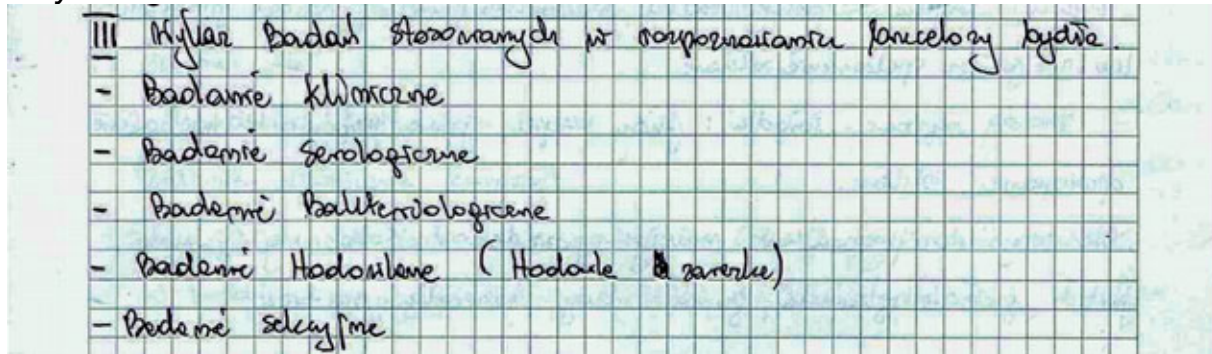 III Wykaz Badań stosowanych w rozpoznawaniu brucelozy bydła.
- Badanie kliniczne
- Badanie Serologiczne
- Badanie Bakteriologiczne
- Badanie Hodowlane ( Hodowle zarazka)
- Badanie sekcyjne